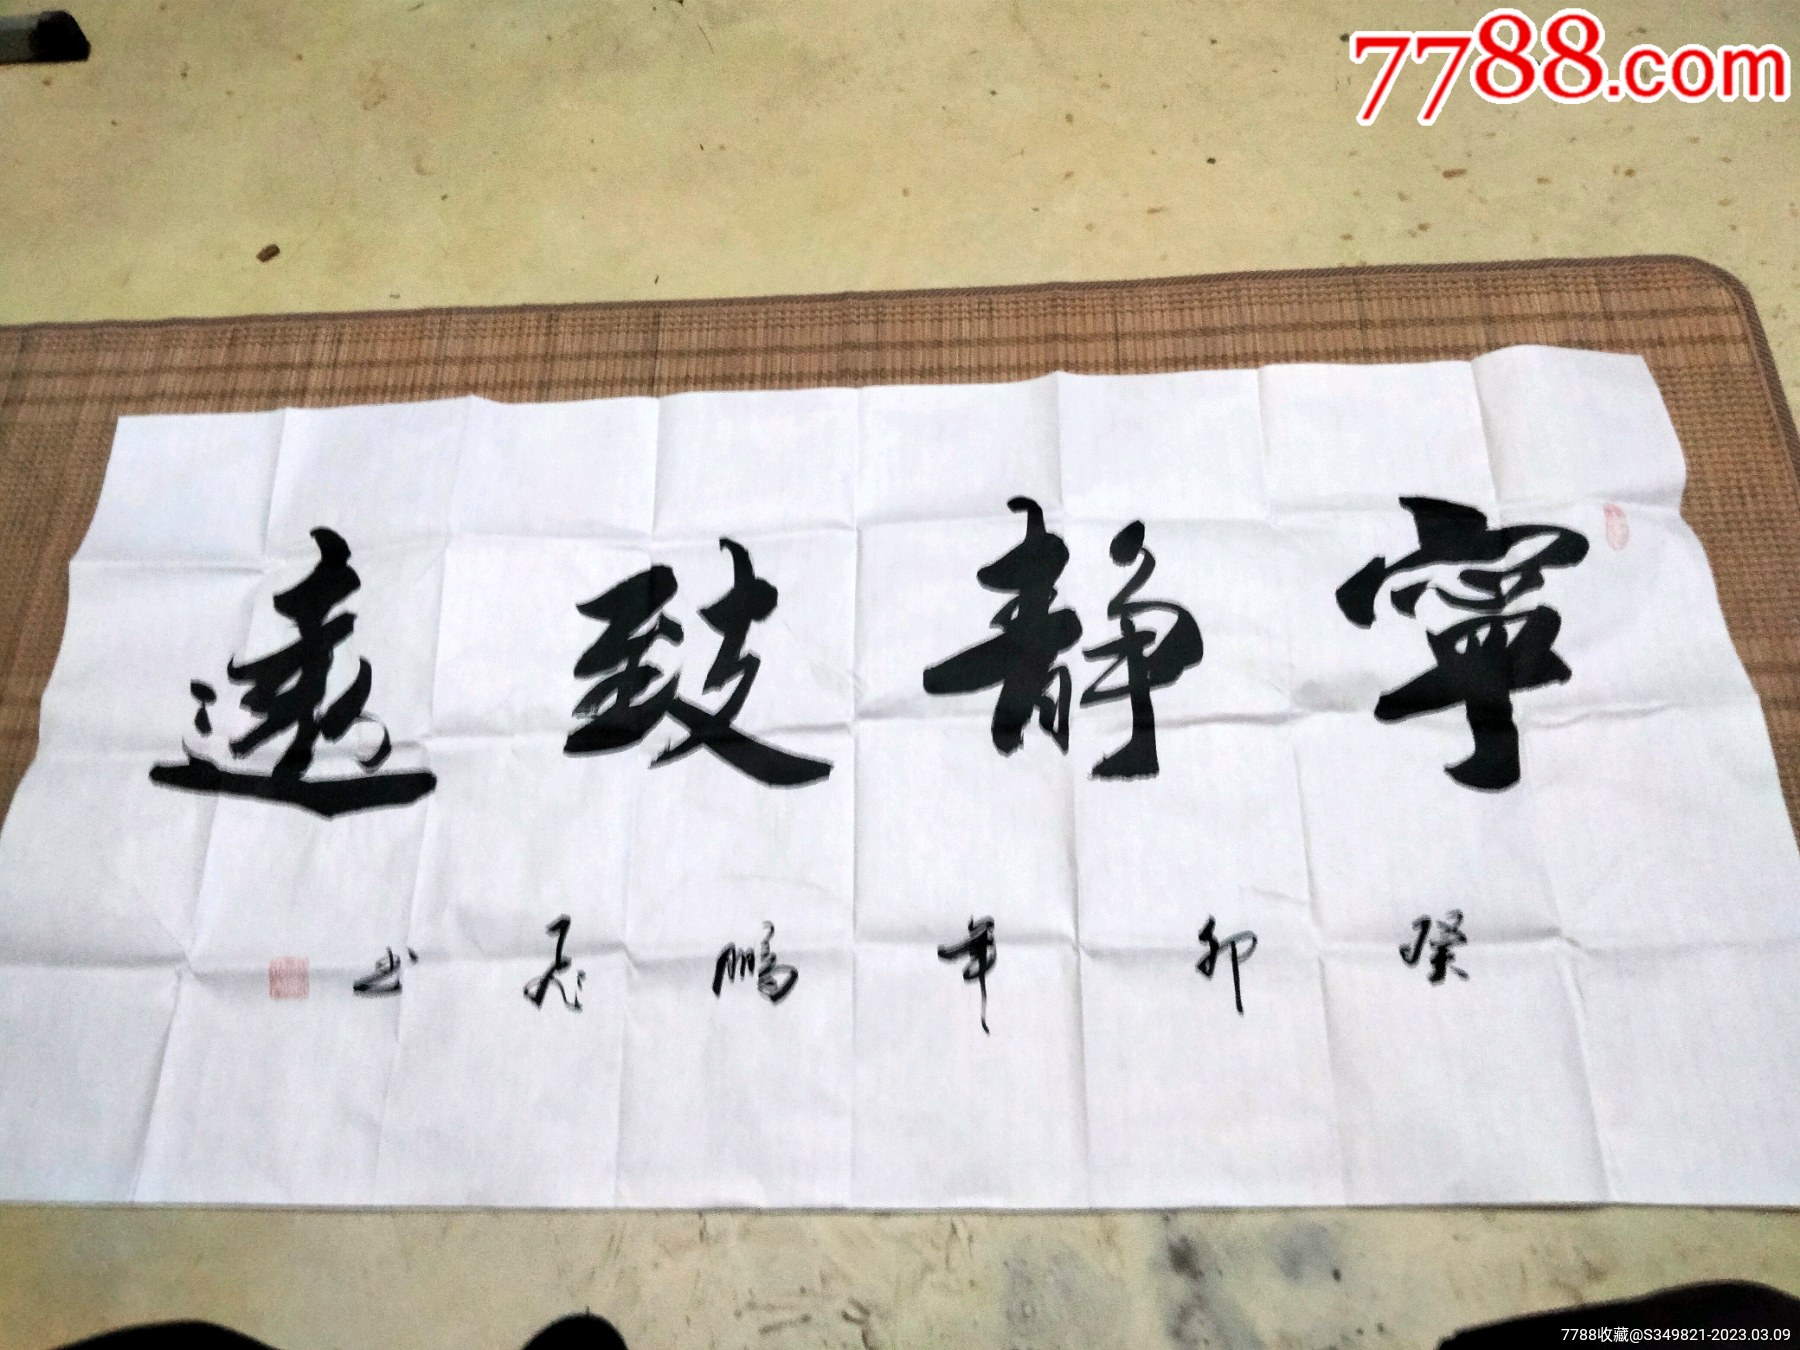 7788.com
寧靜致遠
癸卯年鵬飛书
7788收藏@S349821-2023.03.09